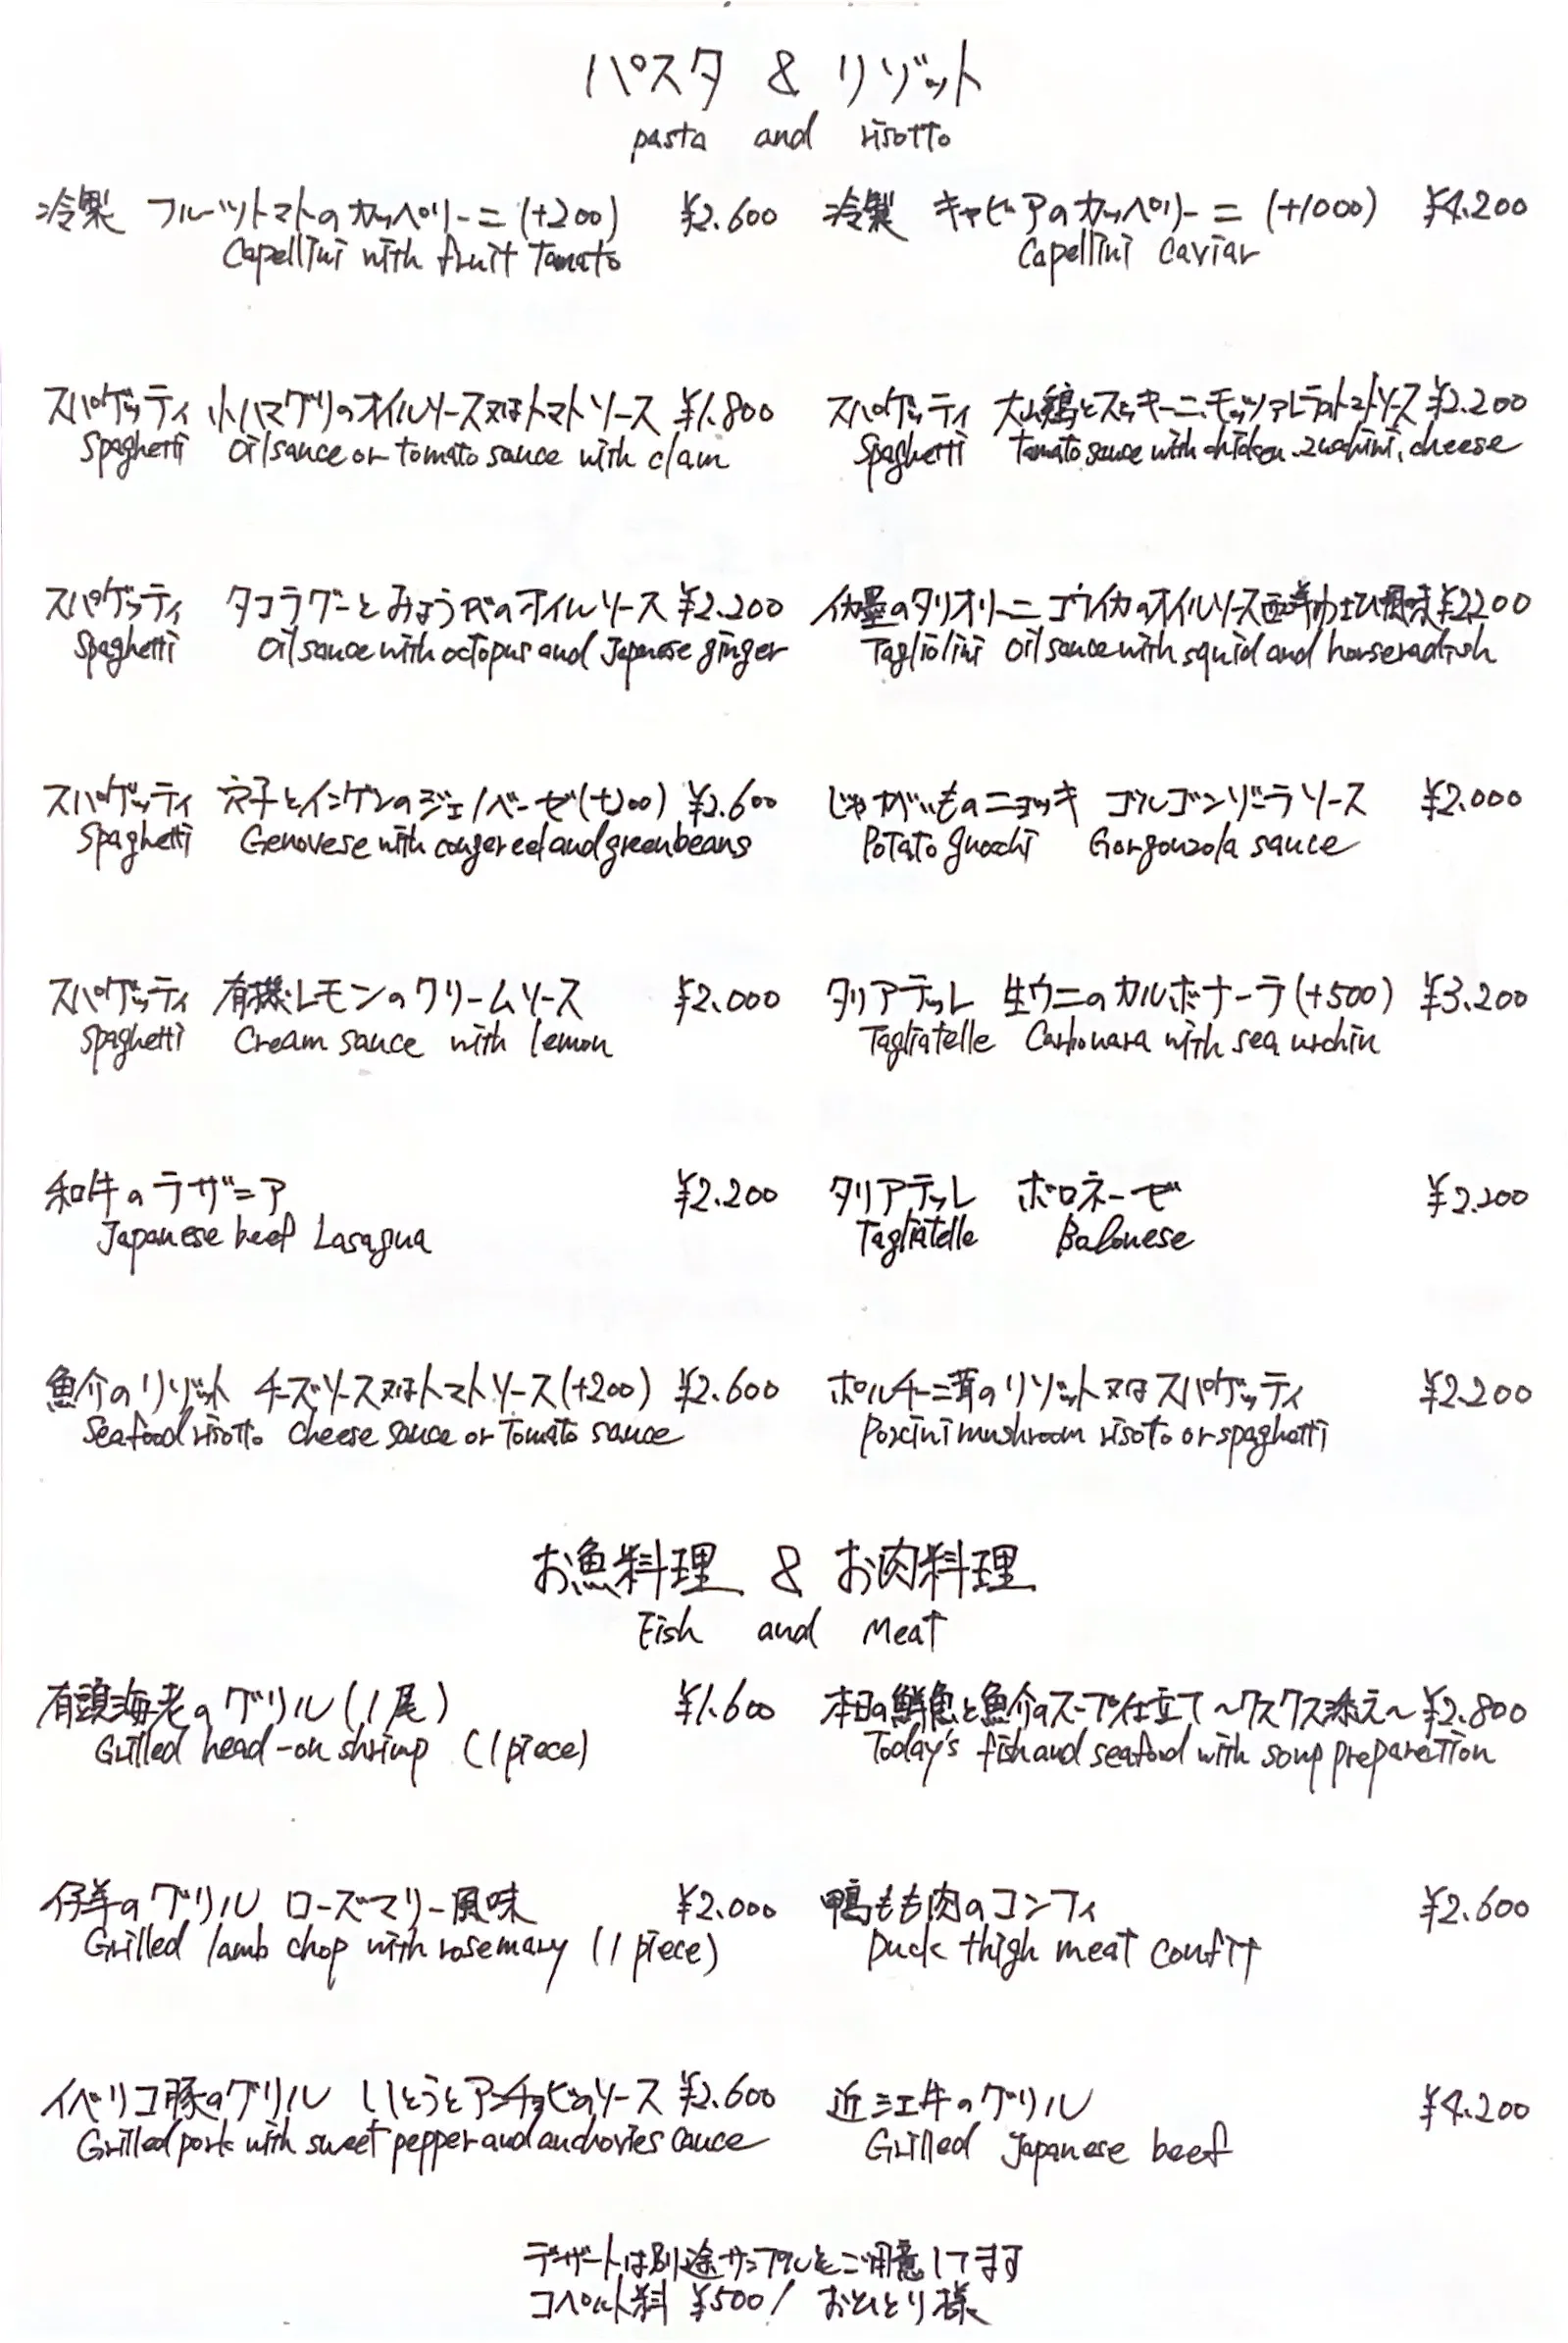 パスタ & リゾット
pasta and risotto
冷製 フルーツトマトのカッペリーニ (+200) ¥2.600
Capellini with fruit Tomato
冷製 キャビアのカッペリーニ (+1000) ¥4.200
Capellini Caviar
スパゲッティ 小ハマグリのオイルソース又はトマトソース ¥1.800
Spaghetti Oil sauce or tomato sauce with clam
スパゲッティ 大山鶏とズッキーニ、モッツァレラのトマトソース ¥2.200
Spaghetti Tomato sauce with chicken, zucchini, cheese
スパゲッティ タコラグーとみょうがのオイルソース ¥2.200
Spaghetti Oil sauce with octopus and Japanese ginger
イカ墨のタリオリーニ コウイカのオイルソース西洋わさび風味 ¥2.200
Tagliolini Oil sauce with squid and horseradish
スパゲッティ 穴子とインゲンのジェノベーゼ(+200) ¥2.600
Spaghetti Genovese with conger eel and green beans
じゃがいものニョッキ ゴルゴンゾーラソース ¥2.000
Potato gnocchi Gorgonzola sauce
スパゲッティ 有機レモンのクリームソース ¥2.000
Spaghetti Cream sauce with lemon
タリアテッレ 生ウニのカルボナーラ(+500) ¥3.200
Tagliatelle Carbonara with sea urchin
和牛のラザニア ¥2.200
Japanese beef Lasagna
タリアテッレ ボロネーゼ ¥2.200
Tagliatelle Bolonese
魚介のリゾット チーズソース又はトマトソース(+200) ¥2.600
Seafood risotto Cheese sauce or Tomato sauce
ポルチーニ茸のリゾット又はスパゲッティ ¥2.200
Porcini mushroom risoto or spaghetti
お魚料理 & お肉料理
Fish and Meat
有頭海老のグリル(1尾) ¥1.600
Grilled head-on shrimp (1piece)
本日の鮮魚と魚介のスープ仕立て~クスクス添え~ ¥2.800
Today's fish and seafood with soup preparation
仔羊のグリル ローズマリー風味 ¥2.000
Grilled lamb chop with rosemary (1 piece)
鴨もも肉のコンフィ ¥2.600
Duck thigh meat confit
イベリコ豚のグリル ししとうとアンチョビのソース ¥2.600
Grilled pork with sweet pepper and anchovies sauce
近江牛のグリル ¥4.200
Grilled Japanese beef
デザートは別途サンプルをご用意してます
コペルト料 ¥500/おひとり様